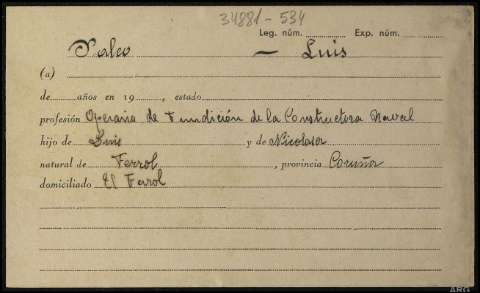 34881-534
Leg. núm. Exp. núm.
Saleo — Luis
(a)
de años en 19 , estado
profesión Operario de Fundición de la Constructora Naval
hijo de Luis y de Nicolasa
natural de Ferrol , provincia Coruña
domiciliado El Ferol